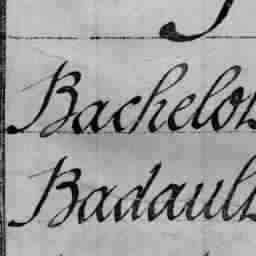 Bachelot
Badault